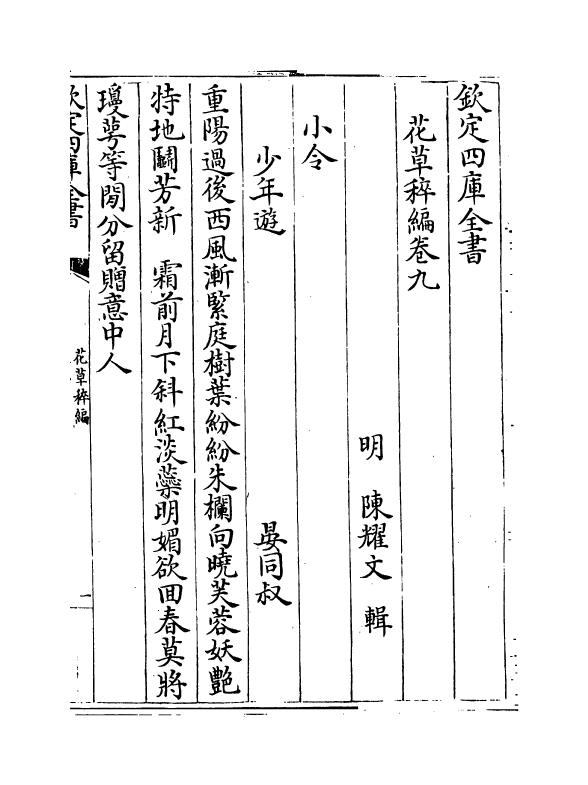 欽定四庫全書
花草稡編卷九
明 陳耀文 輯
小令
少年遊 晏同叔
重陽過後西風漸緊庭樹葉紛紛朱欄向曉芙蓉妖艷
特地鬭芳新 霜前月下斜紅淡蘂明媚欲回春莫將
瓊萼等閒分留贈意中人
欽定四庫全書
花草稡編
一